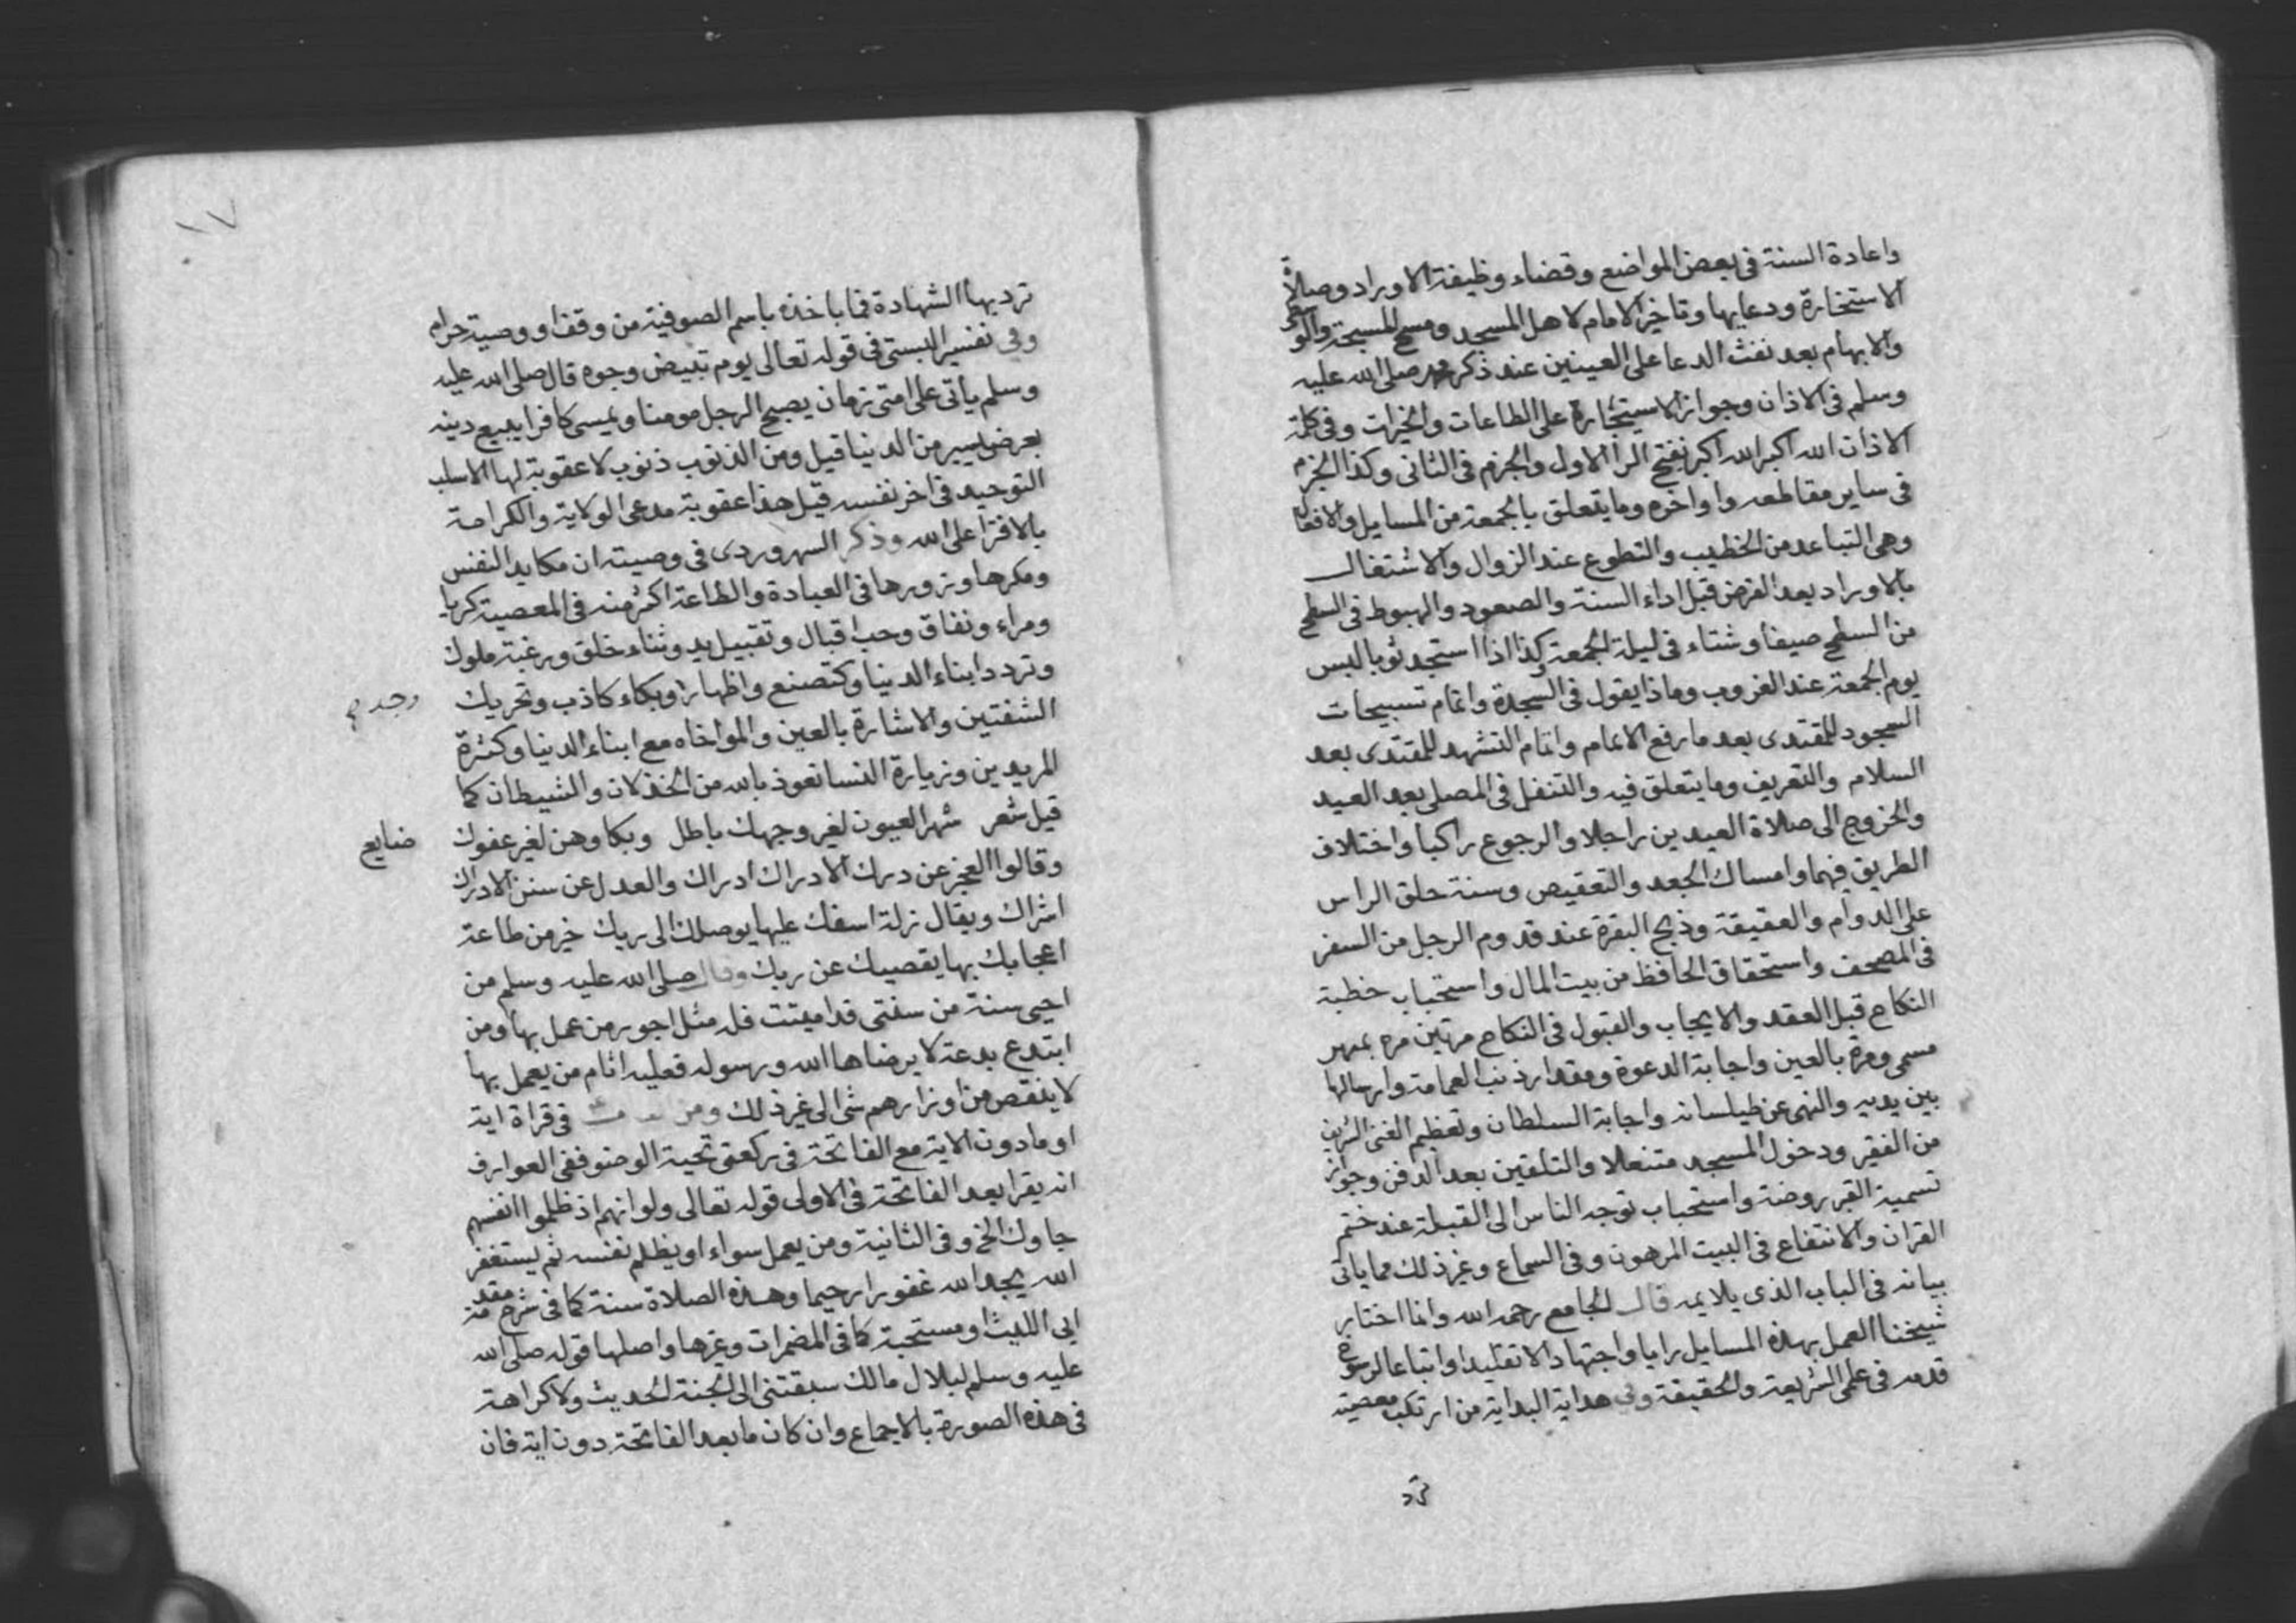 واعادة السنة في بعض المواضع وقضاء وظيفة الاوراد وصلاة
الاستخارة ودعايها وتاخير الامام لاهل المسجد ومسح المسبحة
والابهام بعد نفث الدعا على العينين عند ذكر محمد صلى الله عليه
وسلم في الاذان وجواز الاستيجارة على الطاعات والخيرات وفي كلمة
الاذان الله اكبر الله اكبر بفتح الرا الاول والجزم في الثاني وكذا الجزم
في ساير مقاطعه واواخره وما يتعلق بالجمعة من المسايل والافعال
وهي التباعد من الخطيب والتطوع عند الزوال والاشتغال
بالاوراد بعد الفرض قبل اداء السنة والصعود والهبوط في السطح
من السطح صيفا وشتاء في ليلة الجمعة وكذا اذا استجد ثوبا لبس
يوم الجمعة عند الغروب وماذا يقول في السجدة واتمام تسبيحات
السجود للمقتدى بعد ما رفع الامام واتمام التشهد للمقتدى بعد
السلام والتعريف وما يتعلق فيه والتنفل في المصلى بعد العيد
والخروج الى صلاة العيدين راجلا والرجوع راكبا واختلاف
الطريق فيهما وامساك الجعد والتعقيص وسنة حلق الراس
على الدوام والعقيقة وذبح البقرة عند قدوم الرجل من السفر
في المصحف واستحقاق الحافظ من بيت المال واستحباب خطبة
النكاح قبل العقد والايجاب والقبول في النكاح مرتين مره بمهر
مسمى ومرة بالعين واجابة الدعوة ومقدار ذنب العمامة وارسالها
بين يديه والنهى عن طيلسانه واجابة السلطان وتعظيم الغنى الشريف
من الفقير ودخول المسجد متنعلا والتلقين بعد الدفن وجواز
تسمية القبر روضة واستحباب توجه الناس الى القبلة عند ختم
القران والانتفاع في البيت المرهون وفي السماع وغير ذلك مما ياتي
بيانه في الباب الذى يلايمه قال الجامع رحمه الله وانما اختار
شيخنا العمل بهذه المسايل رايا واجتهادا لا تقليدا واتباعا لرسوخ
قدمه في علمي الشريعة والحقيقة وفي هداية البداية من ارتكب معصية
ترد
١٧
ترديها الشهادة فما ياخذه باسم الصوفية من وقف او وصية حرام
وفي تفسير البستى في قوله تعالى يوم تبيض وجوه قال صلى الله عليه
وسلم ياتي على امتى زمان يصبح الرجل مومنا ويمسى كافرا يبيع دينه
بعرض يسير من الدنيا قيل ومن الذنوب ذنوب لا عقوبة لها الا سلب
التوحيد في اخر نفسه قيل هذا عقوبة مدعى الولاية والكرامة
بالافترا على الله وذكر السهروردى في وصيته ان مكايد النفس
ومكرها وتزويرها في العبادة والطاعة اكثر منه في المعصية كريا
ومراء ونفاق وحب اقبال وتقبيل يد وثناء خلق ورغبة ملوك
وتردد ابناء الدنيا وكتصنع واظهار وبكاء كاذب وتحريك
وجد
الشفتين والاشارة بالعين والمواخاه مع ابناء الدنيا وكثرة
المريدين وزيارة النسا نعوذ بالله من الخذلان والشيطان كما
قيل شعر شهر العيون لغير وجهك باطل وبكاوهن لغير عفوك
ضايع
وقالوا العجز عن درك الادراك ادراك والعدل عن سنن الادراك
اشراك ويقال زلة اسفك عليها يوصلك الى ربك خير من طاعة
اعجابك بها يقصيك عن ربك وقال صلى الله عليه وسلم من
احيى سنة من سنتى قد اميتت فله مثل اجور من عمل بها ومن
ابتدع بدعة لا يرضاها الله ورسوله فعليه اثام من يعمل بها
لا ينقص من اوزارهم شى الى غير ذلك ومن في قراة اية
او ما دون الاية مع الفاتحة في ركعتى تحية الوضو ففى العوارف
انه يقرا بعد الفاتحة في الاولى قوله تعالى ولو انهم اذ ظلموا انفسهم
جاوك الخ وفي الثانية ومن يعمل سواء او يظلم نفسه ثم يستغفر
الله يجد الله غفورا رحيما وهذه الصلاة سنة كما في شرح مقدمة
ابى الليث او مستحبة كما في المضمرات وغيرها واصلها قوله صلى الله
عليه وسلم لبلال مالك سبقتنى الى الجنة الحديث ولا كراهة
في هذه الصورة بالاجماع وان كان ما بعد الفاتحة دون اية فان